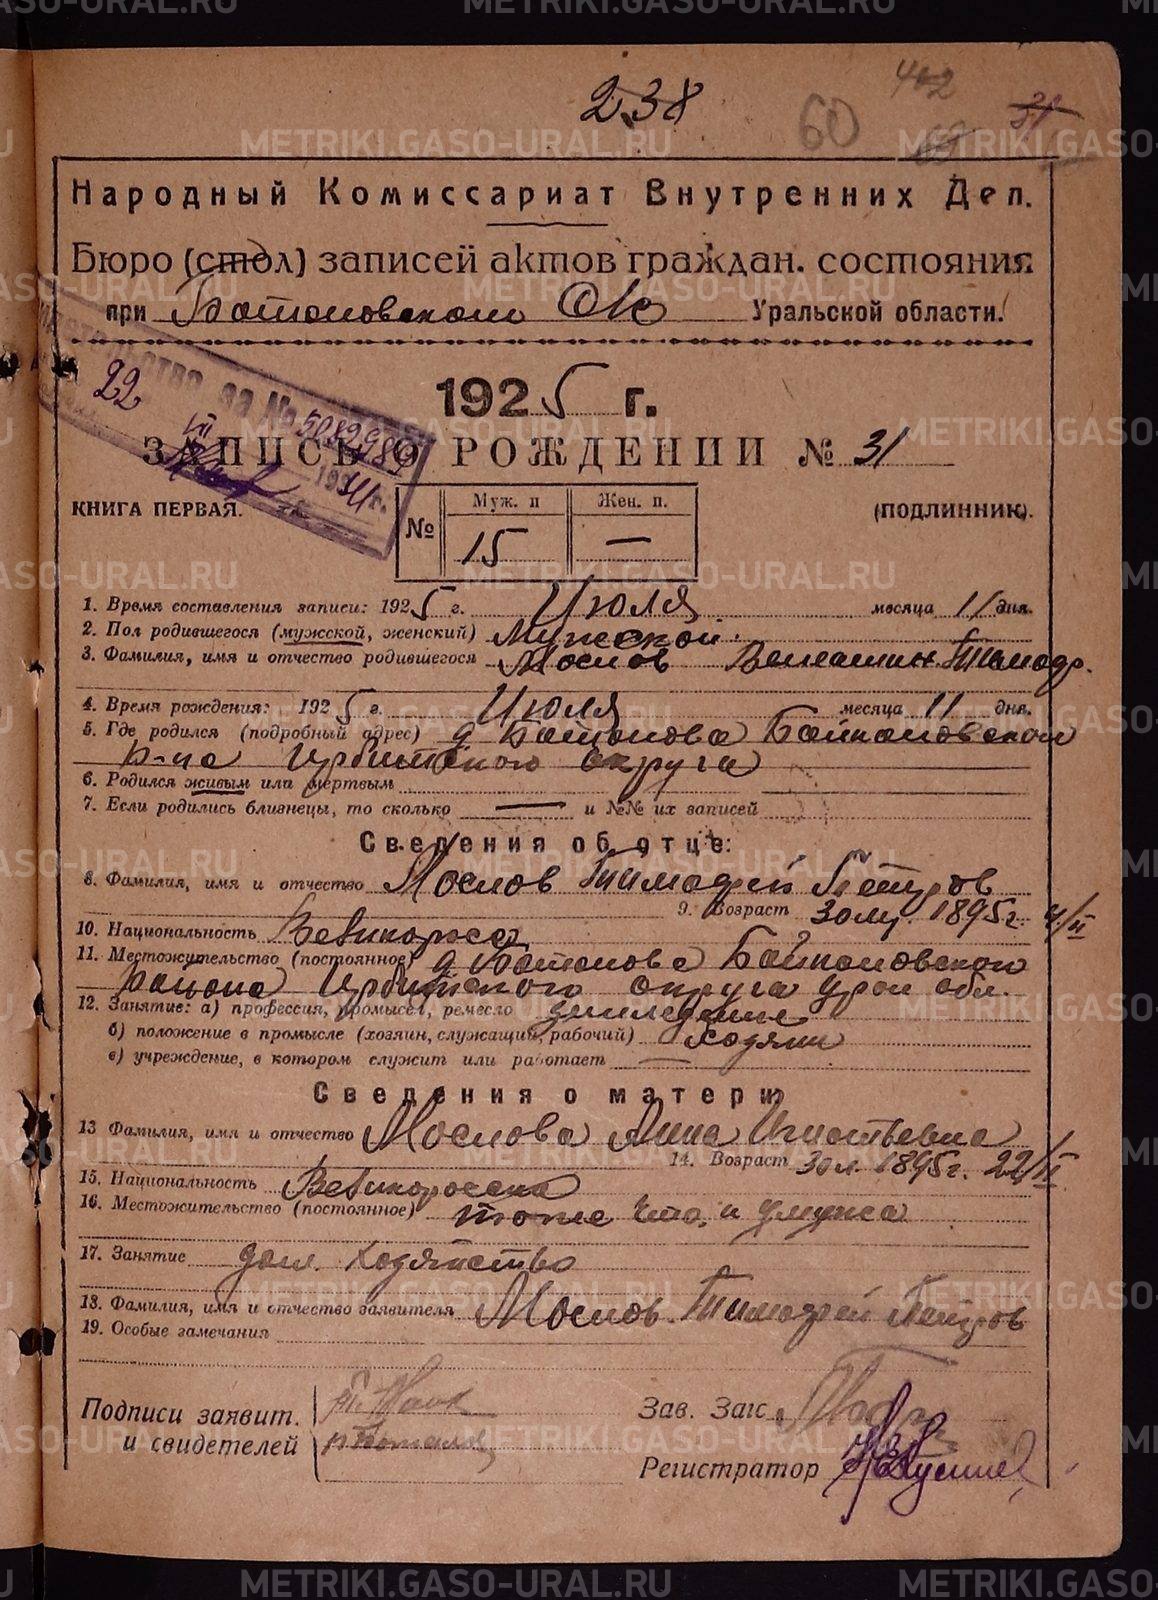 238 60 402
Народный Комиссариат Внутренних Дел.
Бюро (стол) записей актов граждан. состояния
при Ботоновском Уральской области.
1925 г.
22
за № 5089989
ЗАПИСЬ О РОЖДЕНИИ № 31
КНИГА ПЕРВАЯ. (ПОДЛИННИК).
№ Муж. п Жен. п.
15 —
1. Время составления записи: 1925 г. Июля месяца 11 дня.
2. Пол родившегося (мужской, женский) Мужской.
3. Фамилия, имя и отчество родившегося Маслов Вениамин Тимофр.
4. Время рождения: 1925 г. Июля месяца 11 дня.
5. Где родился (подробный адрес) д Ботонова Байкаловском
Р-на Ирбитского округа
6. Родился живым или мертвым
7. Если родились близнецы, то сколько — и №№ их записей
Сведения об отце:
8. Фамилия, имя и отчество Маслов Тимофей Петров
9. Возраст 30 лет 1895 г. 4/II
10. Национальность
11. Местожительство (постоянное) д Ботонова Байкаловского
района Ирбитского округа Урал обл.
12. Занятие: а) профессия, промысел, ремесло земледелие
б) положение в промысле (хозяин, служащий, рабочий) хозяин
в) учреждение, в котором служит или работает —
Сведения о матери
13 Фамилия, имя и отчество Маслова Анна Игнатьевна
14. Возраст 30 л. 1895 г. 22/II
15. Национальность Великоросска
16. Местожительство (постоянное) тоже что и у мужа
17. Занятие дом. хозяйство
18. Фамилия, имя и отчество заявителя Маслов Тимофей Петров
19. Особые замечания
Подписи заявит. Зав. Загс
и свидетелей
Регистратор
METRIKI.GASO-URAL.RU